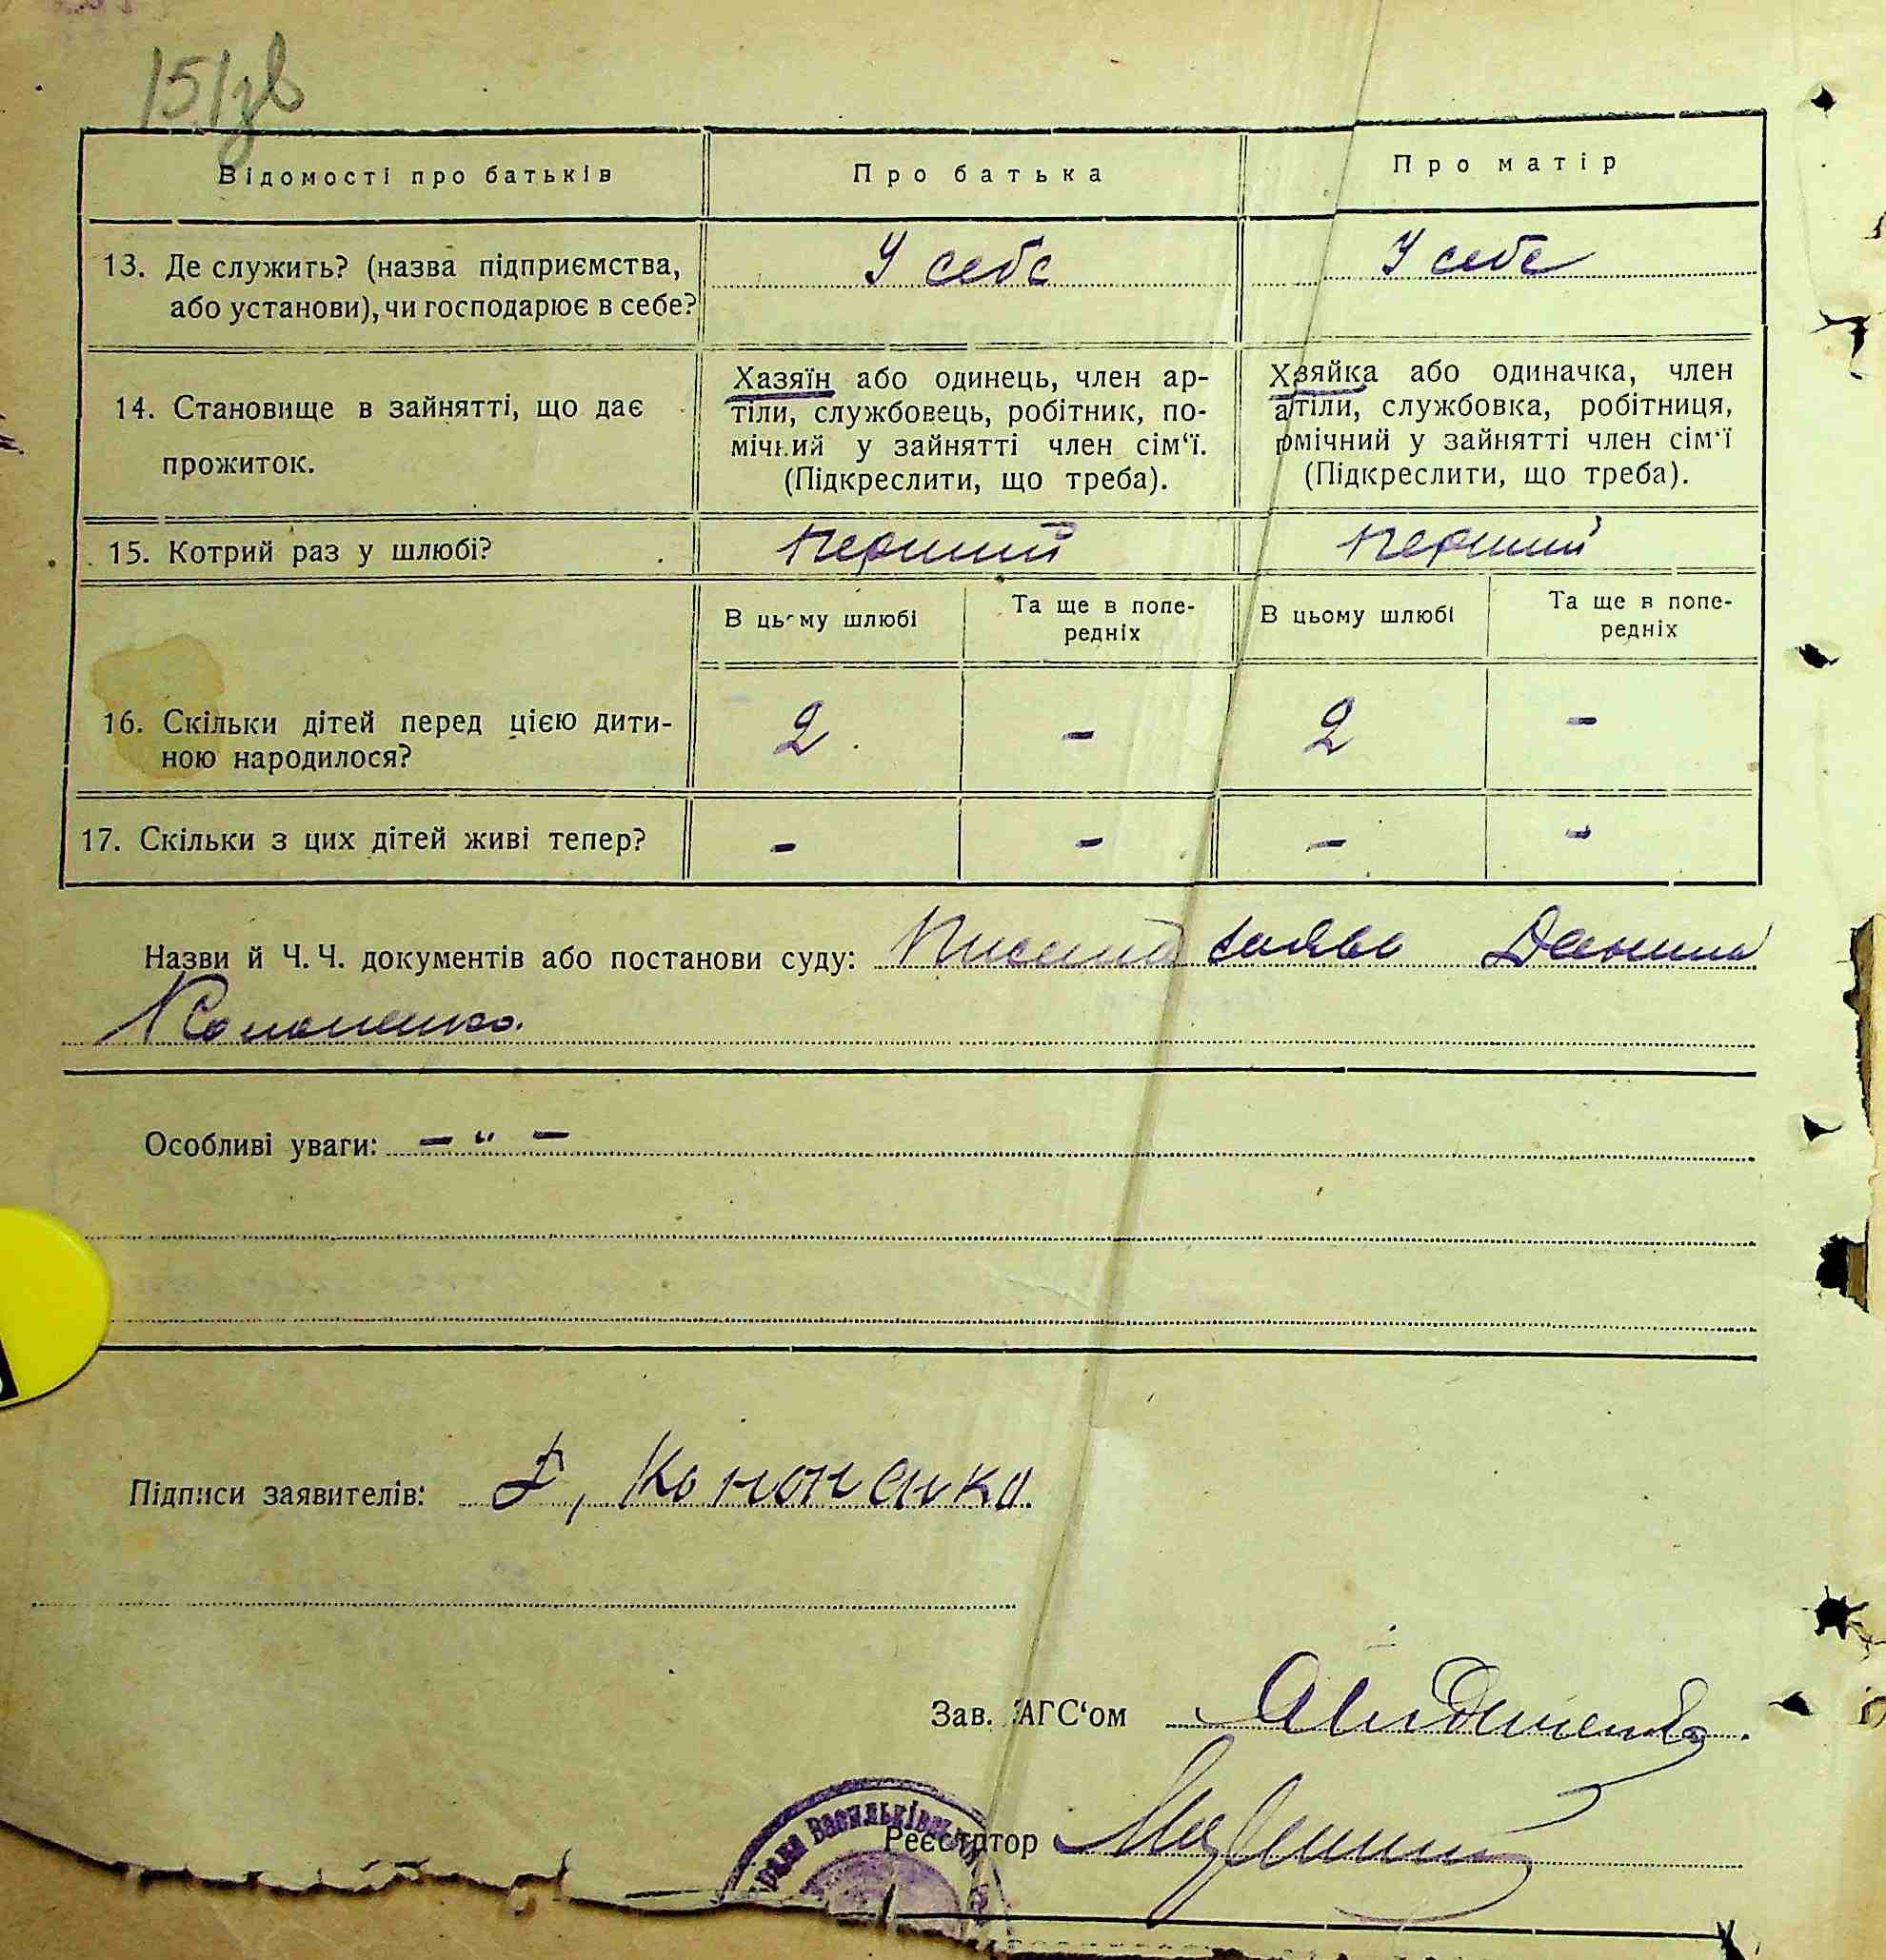 151зв
Відомості про батьків
Про батька
Про матір
13. Де служить? (назва підприємства,
або установи), чи господарює в себе?
У себе
У себе
14. Становище в зайнятті, що дає
прожиток.
Хазяїн або одинець, член ар-
тіли, службовець, робітник, по-
мічний у зайнятті член сім‘ї.
(Підкреслити, що треба).
Хзяйка або одиначка, член
атіли, службовка, робітниця,
омічний у зайнятті член сім‘ї
(Підкреслити, що треба).
15. Котрий раз у шлюбі?
перший
перший
В цьму шлюбі
Та ще в попе-
редніх
В цьому шлюбі
Та ще в попе-
редніх
16. Скільки дітей перед цією дити-
ною народилося?
2
-
2
-
17. Скільки з цих дітей живі тепер?
-
-
-
-
Назви й Ч. Ч. документів або постанови суду: заява Данила
Кононенко.
Особливі уваги: - " -
Підписи заявителів: Д, Кононенко
Зав. ЗАГС‘ом
Васильківсь
Реєстртор